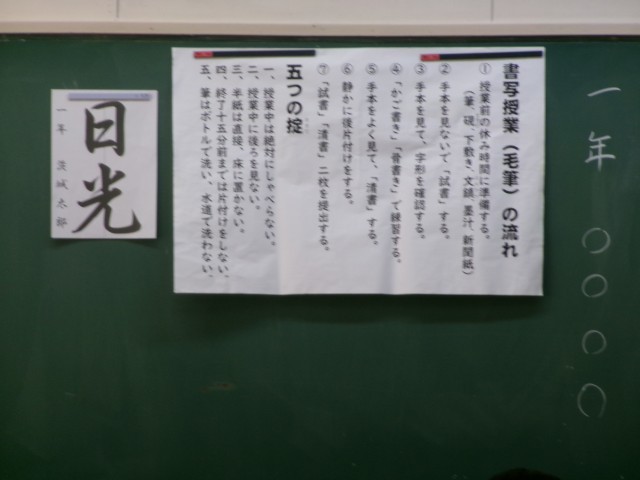 一年 ○○○○
書写授業（毛筆）の流れ
① 授業前の休み時間に準備する。
（筆、硯、下敷き、文鎮、墨汁、新聞紙）
② 手本を見ないで「試書」する。
③ 手本を見て、字形を確認する。
④ 「かご書き」「骨書き」で練習する。
⑤ 手本をよく見て、「清書」する。
⑥ 静かに後片付けをする。
⑦ 「試書」「清書」二枚を提出する。
五つの掟
一、授業中は絶対にしゃべらない。
二、授業中に後ろを見ない。
三、半紙は直接、床に置かない。
四、終了十五分前までは片付けをしない。
五、筆はボトルで洗い、水道で洗わない。
日光
一年 茨城太郎